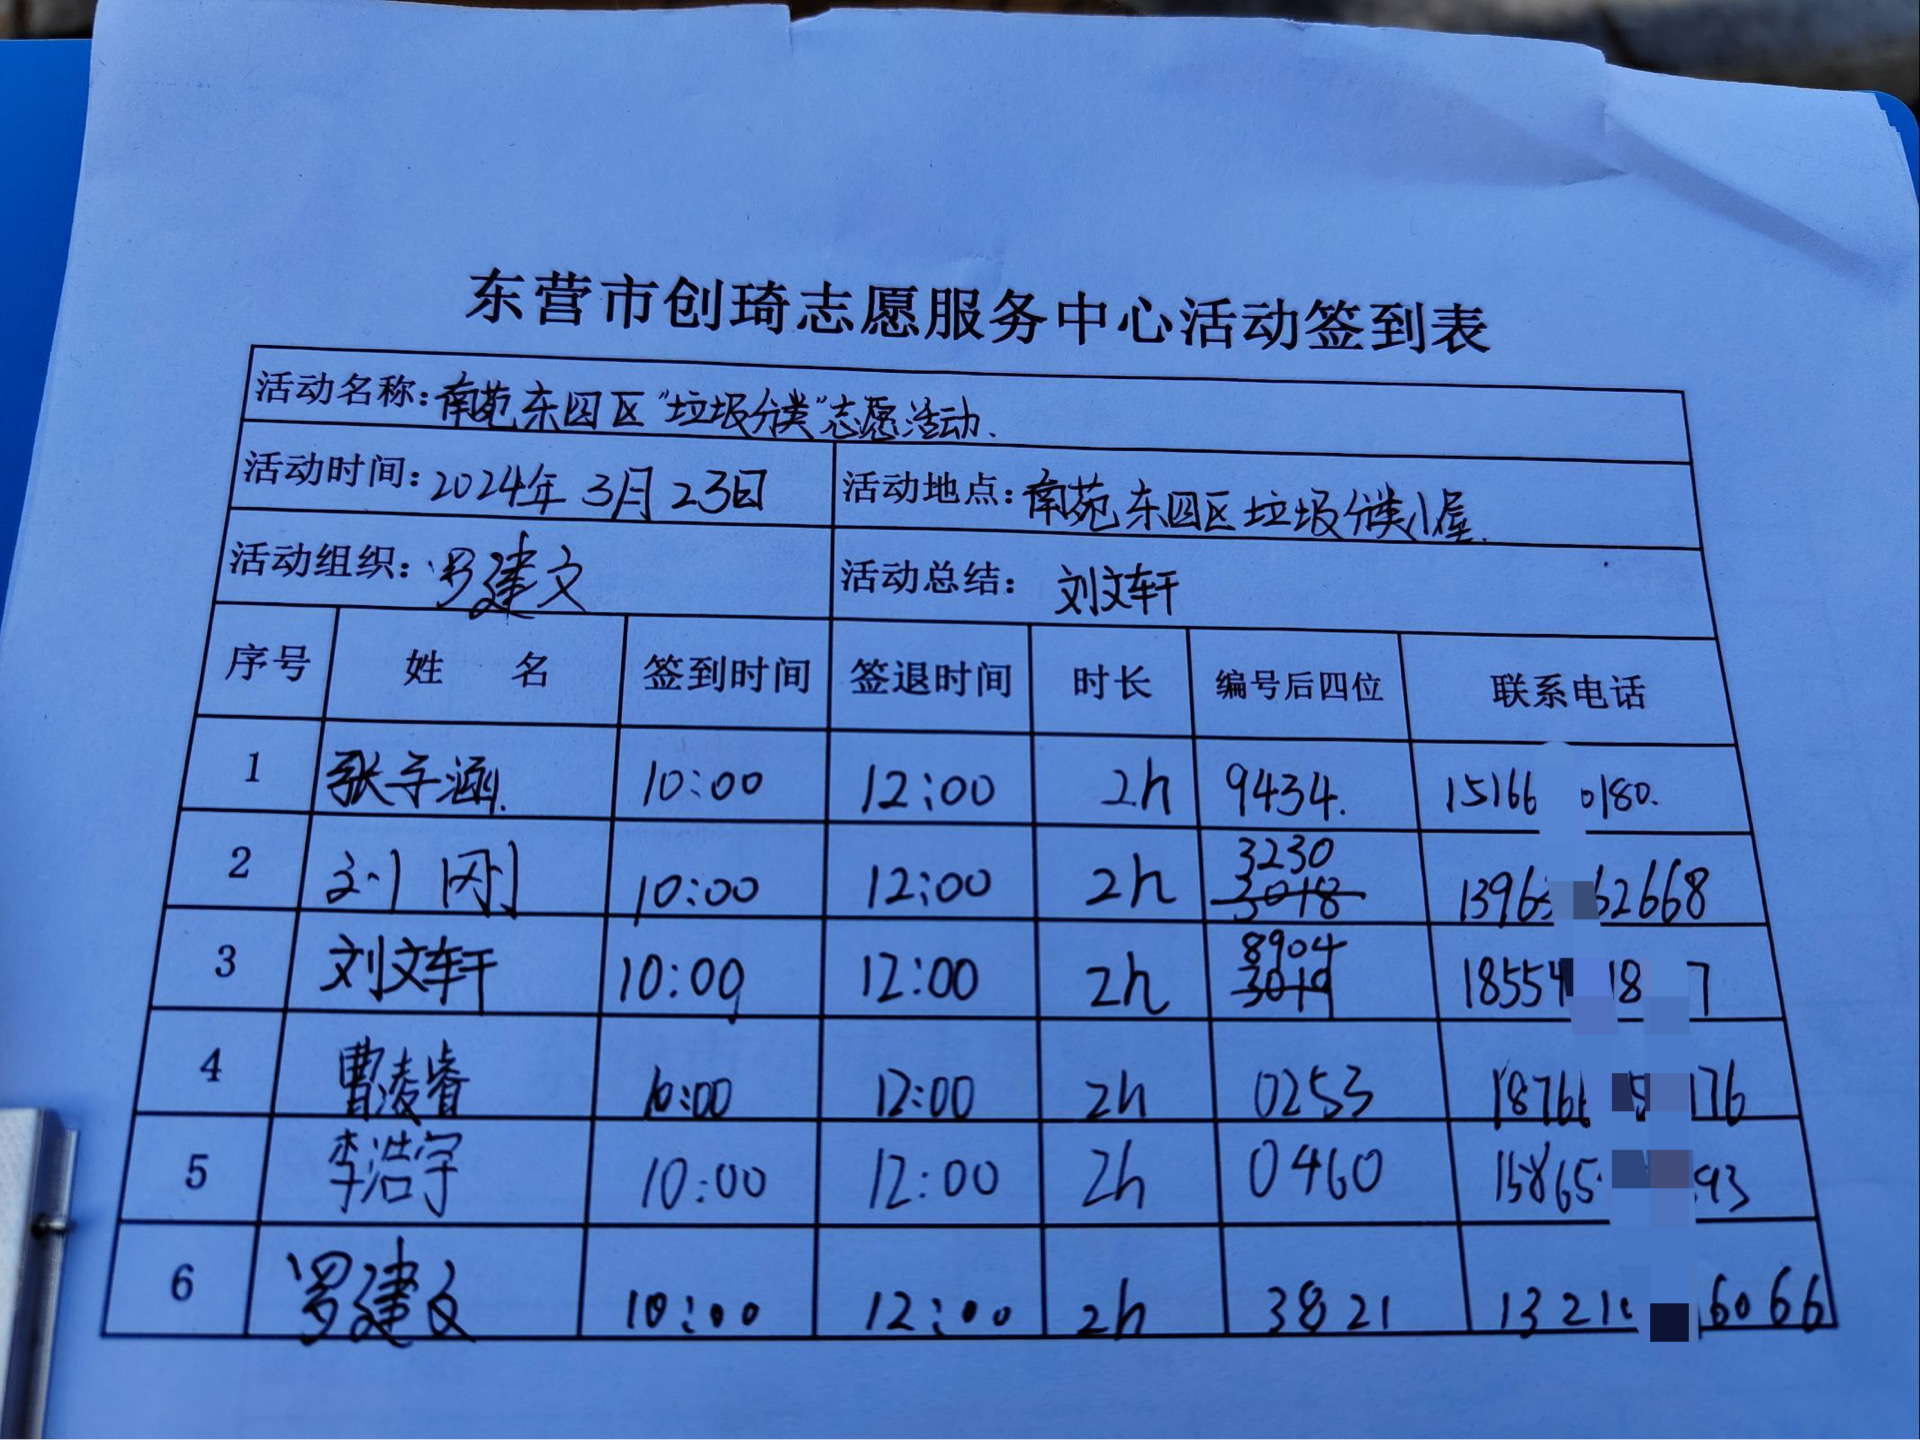 东营市创琦志愿服务中心活动签到表
活动名称：南苑东四区“垃圾分类”志愿活动.
活动时间：2024年3月23日 活动地点：南苑东四区垃圾分类小屋.
活动组织：罗建文 活动总结：刘文轩
序号 姓 名 签到时间 签退时间 时长 编号后四位 联系电话
1 张子涵. 10:00 12:00 2h 9434. 15166 0180.
3230
2 刘刚 10:00 12:00 2h 3018 13963 62668
8904
3 刘文轩 10:00 12:00 2h 3019 18554 18 7
4 曹凌睿 10:00 12:00 2h 0253 18766 5 176
5 李浩宇 10:00 12:00 2h 0460 15865 93
6 罗建文 10:00 12:00 2h 3821 1321 6066